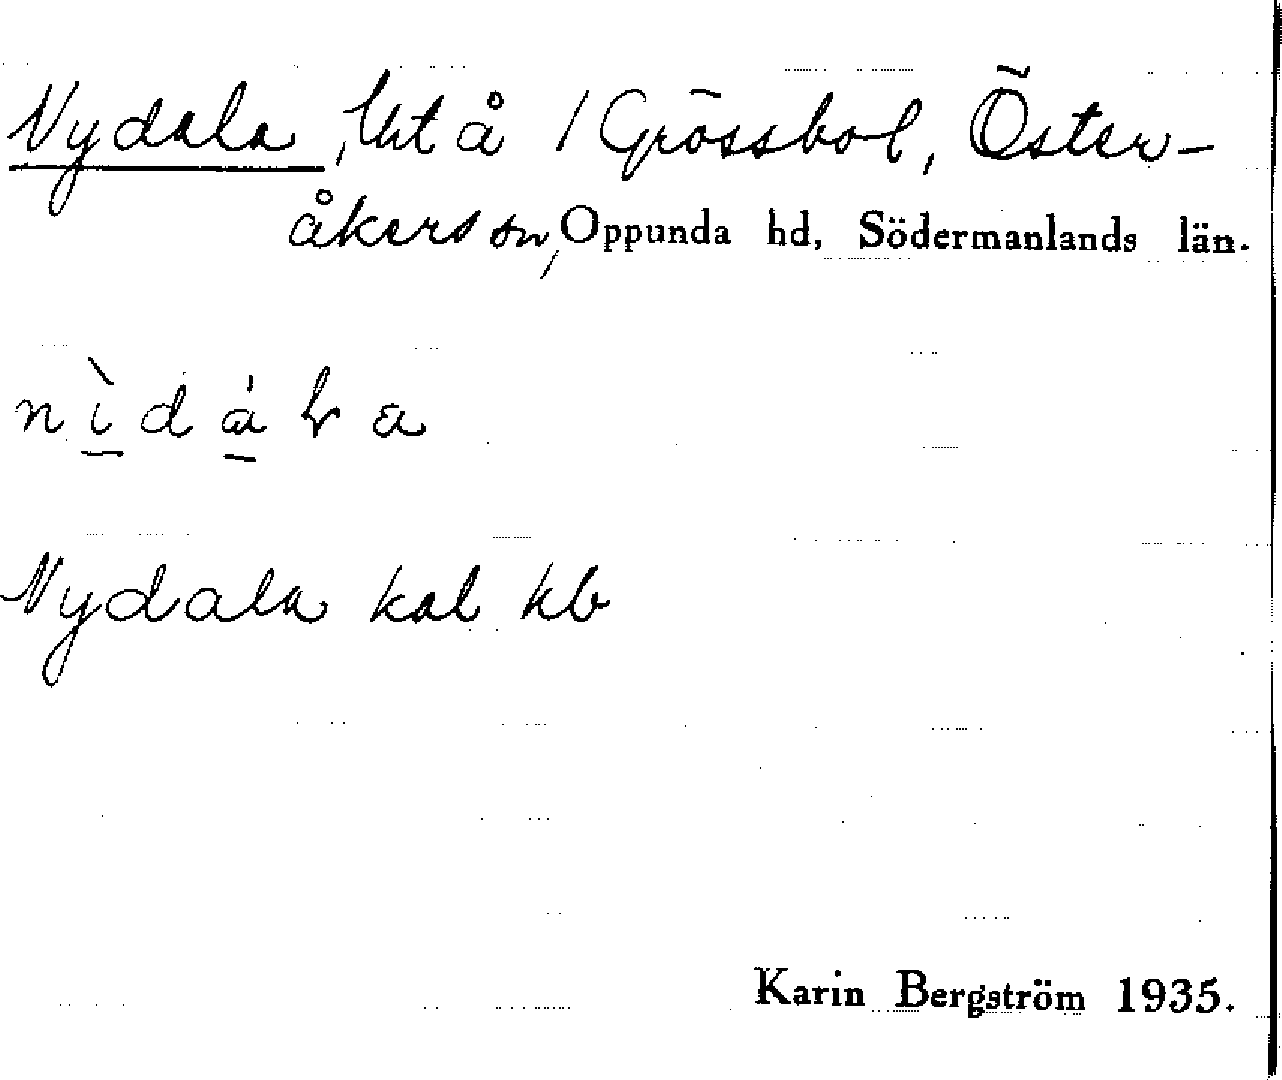 Nydala, lht å 1 Grössbol, Öster-
åkers sn, Oppunda hd, Södermanlands län.
Nydala kal kb
Karin Bergström 1935.